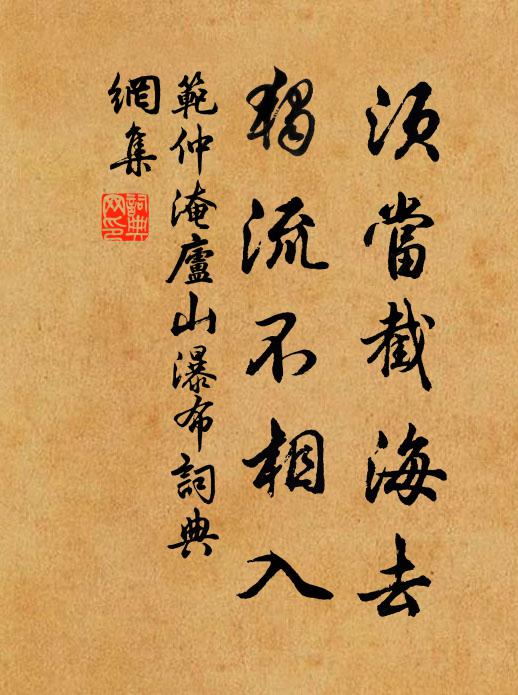 須當截海去
獨流不相入
範仲淹廬山瀑布詞典
網集
詞典
网印